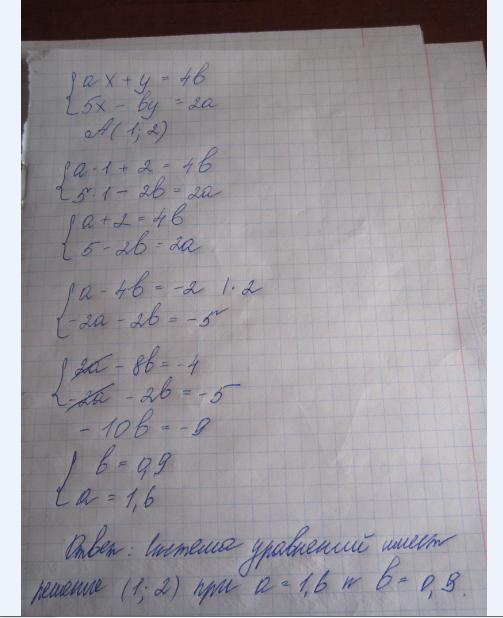 {ax + y = 4b
{5x - by = 2a
A(1; 2)
{a·1 + 2 = 4b
{5·1 - 2b = 2a
{a + 2 = 4b
{5 - 2b = 2a
{a - 4b = -2 |·2
{-2a - 2b = -5
{2a - 8b = -4
{-2a - 2b = -5
-10b = -9
{b = 0,9
{a = 1,6
Ответ: Система уравнений имеет
решение (1; 2) при a = 1,6 и b = 0,9.